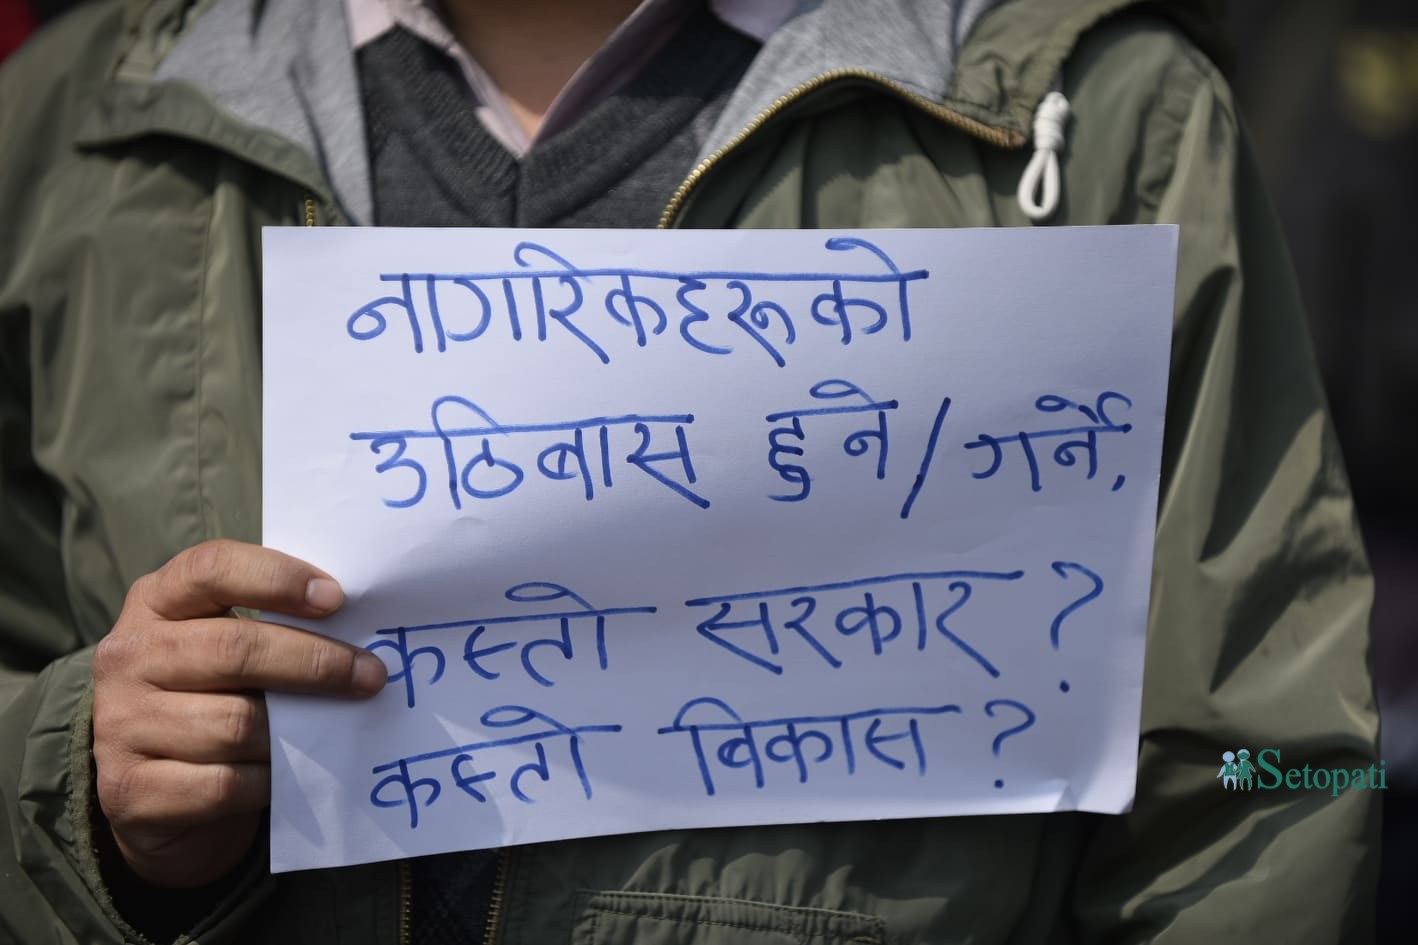 नागरिकहरूको
उठिबास हुने/गर्ने,
कस्तो सरकार ?
कस्तो बिकास ?
Setopati